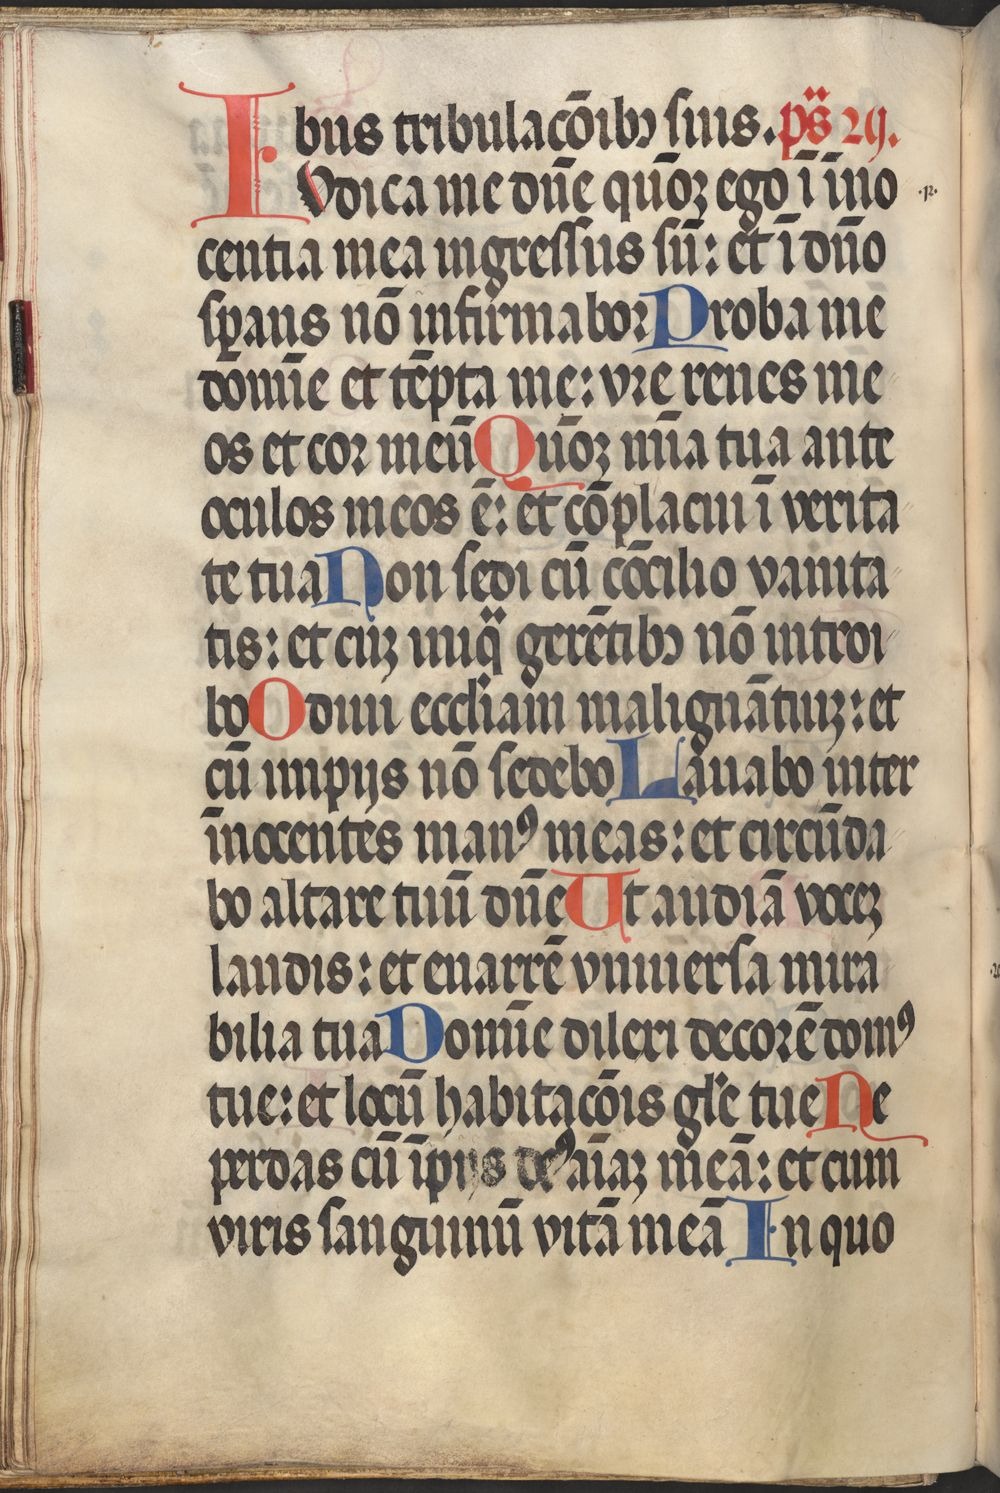 bus tribulac̄oibꝫ suis. ps̄ 29.
IVdica me dn̄e qūoꝫ ego ī ino
centia mea ingressus sū: et ī dn̄o
sꝑans nō infirmabor Proba me
domīe et tēpta me: vre renes me
os et cor meū Qūoꝫ mīa tua ante
oculos meos ē: et cōplacui ī verita
te tua Non sedi cū cōcilio vanita
tis: et cuꝫ iniq̄ gerētibꝫ nō introi
bo Odiui eccl'iam malignātiuꝫ: et
cū impijs nō sedebo Lauabo inter
īnocentes manꝰ meas: et circūda
bo altare tuū dn̄e Ut audiā voceꝫ
laudis: et enarrē vniuersa mira
bilia tua Domīe dilexi decorē domꝰ
tue: et locū habitac̄ois gl'e tue Ne
perdas cū īpijs deꝰ aīaꝫ meā: et cum
viris sanguinū vitā meā In quo